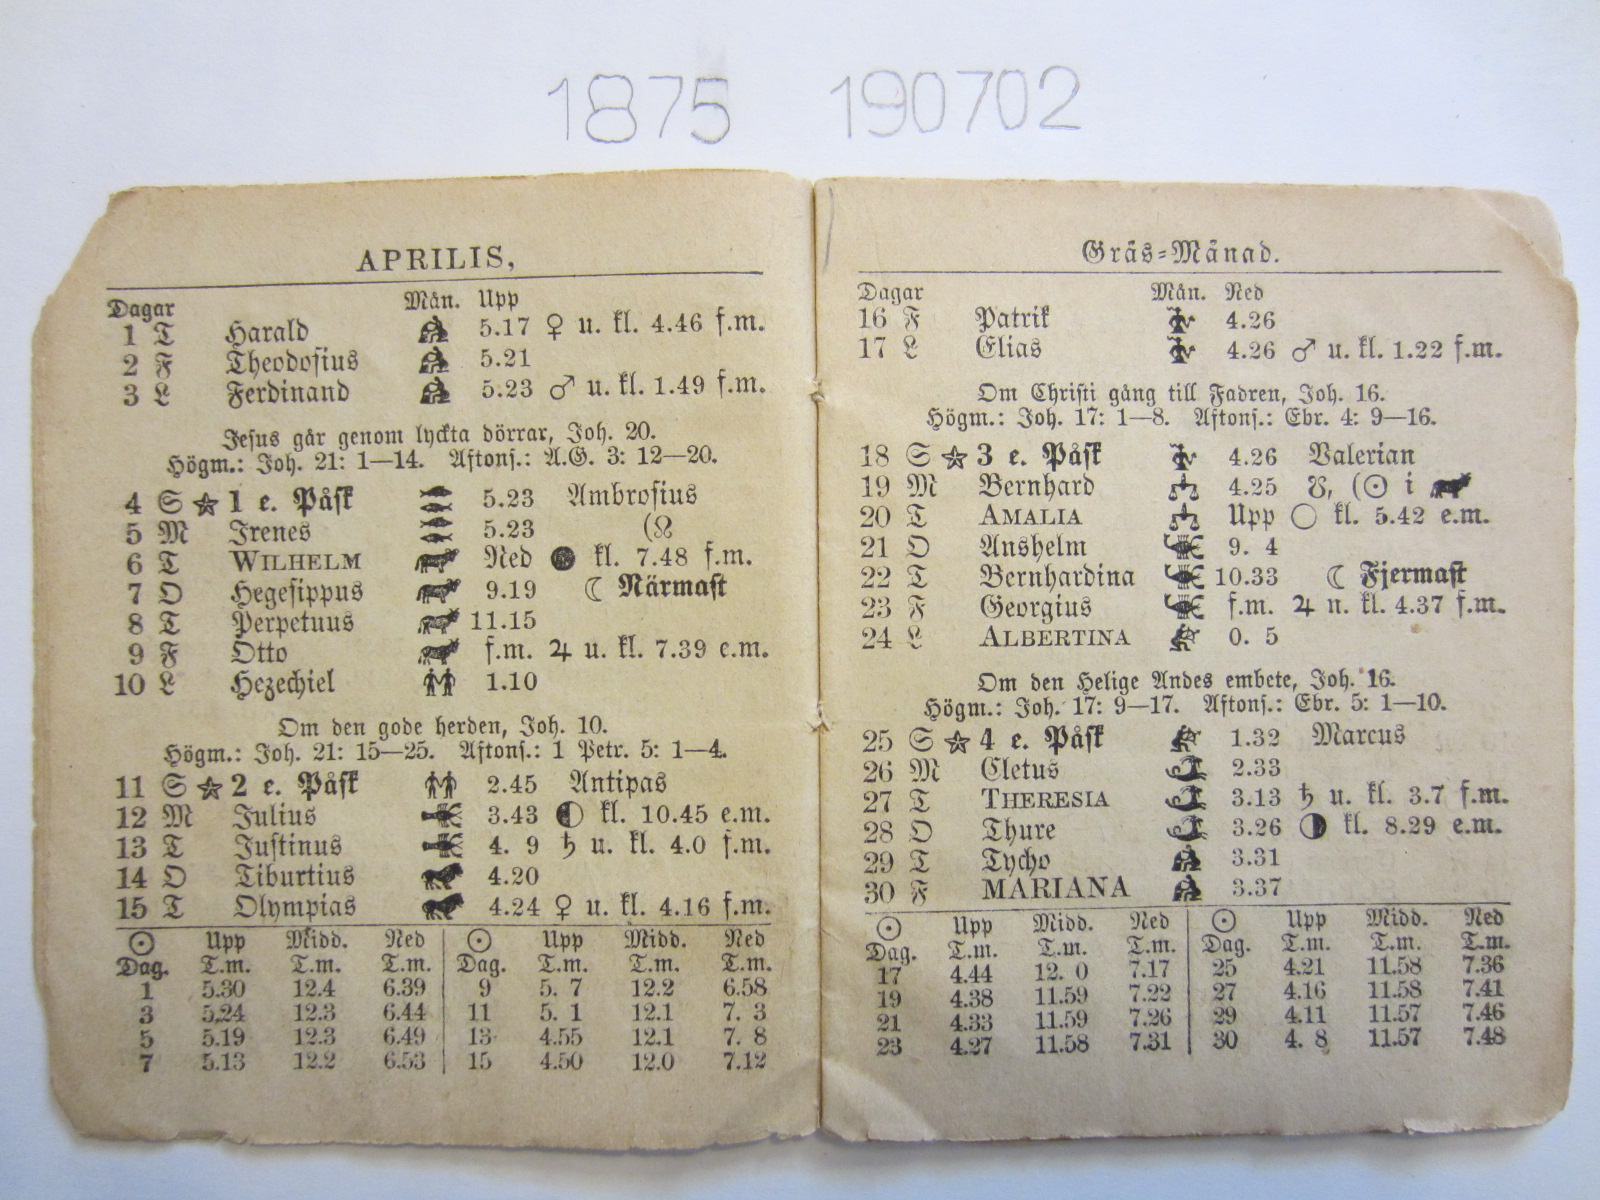 1875 190702
APRILIS,
Dagar Mån. Upp
1 T Harald 5.17 ♀ u. kl. 4.46 f.m.
2 F Theodosius 5.21
3 L Ferdinand 5.23 ♂ u. kl. 1.49 f.m.
Jesus går genom lyckta dörrar, Joh. 20.
Högm.: Joh. 21: 1—14. Aftons.: A.G. 3: 12—20.
4 S ☆ 1 e. Påsk 5.23 Ambrosius
5 M Irenes 5.23 (☊
6 T WILHELM Ned ● kl. 7.48 f.m.
7 O Hegesippus 9.19 ☾ Närmast
8 T Perpetuus 11.15
9 F Otto f.m. ♃ u. kl. 7.39 e.m.
10 L Hezechiel 1.10
Om den gode herden, Joh. 10.
Högm.: Joh. 21: 15—25. Aftons.: 1 Petr. 5: 1—4.
11 S ☆ 2 e. Påsk 2.45 Antipas
12 M Julius 3.43 ◐ kl. 10.45 e.m.
13 T Justinus 4. 9 ♄ u. kl. 4.0 f.m.
14 O Tiburtius 4.20
15 T Olympias 4.24 ♀ u. kl. 4.16 f.m.
☉ Upp Midd. Ned ☉ Upp Midd. Ned
Dag. T.m. T.m. T.m. Dag. T.m. T.m. T.m.
1 5.30 12.4 6.39 9 5. 7 12.2 6.58
3 5.24 12.3 6.44 11 5. 1 12.1 7. 3
5 5.19 12.3 6.49 13 4.55 12.1 7. 8
7 5.13 12.2 6.53 15 4.50 12.0 7.12
Gräs-Månad.
Dagar Mån. Ned
16 F Patrik 4.26
17 L Elias 4.26 ♂ u. kl. 1.22 f.m.
Om Christi gång till Fadren, Joh. 16.
Högm.: Joh. 17: 1—8. Aftons.: Ebr. 4: 9—16.
18 S ☆ 3 e. Påsk 4.26 Valerian
19 M Bernhard 4.25 ☋, (☉ i
20 T AMALIA Upp ○ kl. 5.42 e.m.
21 O Anshelm 9. 4
22 T Bernhardina 10.33 ☾ Fjermast
23 F Georgius f.m. ♃ n. kl. 4.37 f.m.
24 L ALBERTINA 0. 5
Om den Helige Andes embete, Joh. 16.
Högm.: Joh. 17: 9—17. Aftons.: Ebr. 5: 1—10.
25 S ☆ 4 e. Påsk 1.32 Marcus
26 M Cletus 2.33
27 T THERESIA 3.13 ♄ u. kl. 3.7 f.m.
28 O Thure 3.26 ◑ kl. 8.29 e.m.
29 T Tycho 3.31
30 F MARIANA 3.37
☉ Upp Midd. Ned ☉ Upp Midd. Ned
Dag. T.m. T.m. T.m. Dag. T.m. T.m. T.m.
17 4.44 12. 0 7.17 25 4.21 11.58 7.36
19 4.38 11.59 7.22 27 4.16 11.58 7.41
21 4.33 11.59 7.26 29 4.11 11.57 7.46
23 4.27 11.58 7.31 30 4. 8 11.57 7.48